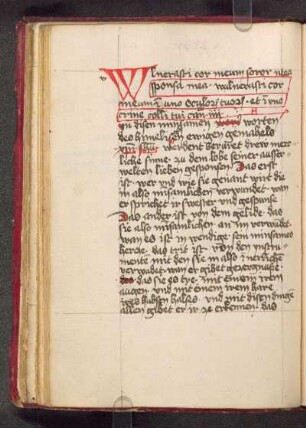 Wlnerasti cor meum soror mea
sponsa mea · wulnerasti cor
meum in uno oculorum tuorum · et in uno
crine colli tui can · iiii
In disen minsamen worten
des himelischen ewigen gemahels
werdent berüret drew merck
liche sinne · zu dem lobe seiner auser
welten lieben gesponsen · Das erst
ist wer und wie sie genant wirt die
in also minsamlichen verwundet · wan
er sprichet ir swester und gesponse
Das ander ist von dem gelide · das
sie also minsamlichen an im verwundet
wan es ist in wendig · sein minsames
hercze · das trit ist von den instru
mente mit den sie in also innerliche
verwundet · wan er gibet ze erkennen
das sie es tüe · mit einem iren
augen · und mit einem irem hare
irs hubschen halses · und mit disen dingen
allen gibet er ir ze erkennen · das